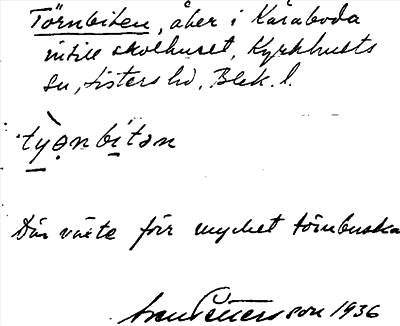 Törnbiten, åker i Kåraboda
intill skolhuset, Kyrkhults
sn, Listers hd, Blek. l.
Där växte förr mycket törnbuska
Sven Pettersson 1936